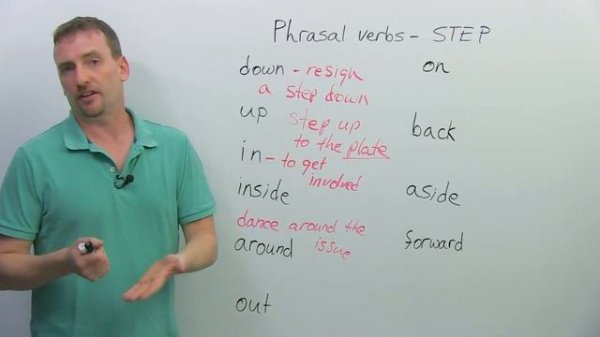 Phrasal verbs - STEP
down - resign
a step down
up step up
to the plate
in - to get
involved
inside
dance around the
issue
around
out
on
back
aside
forward